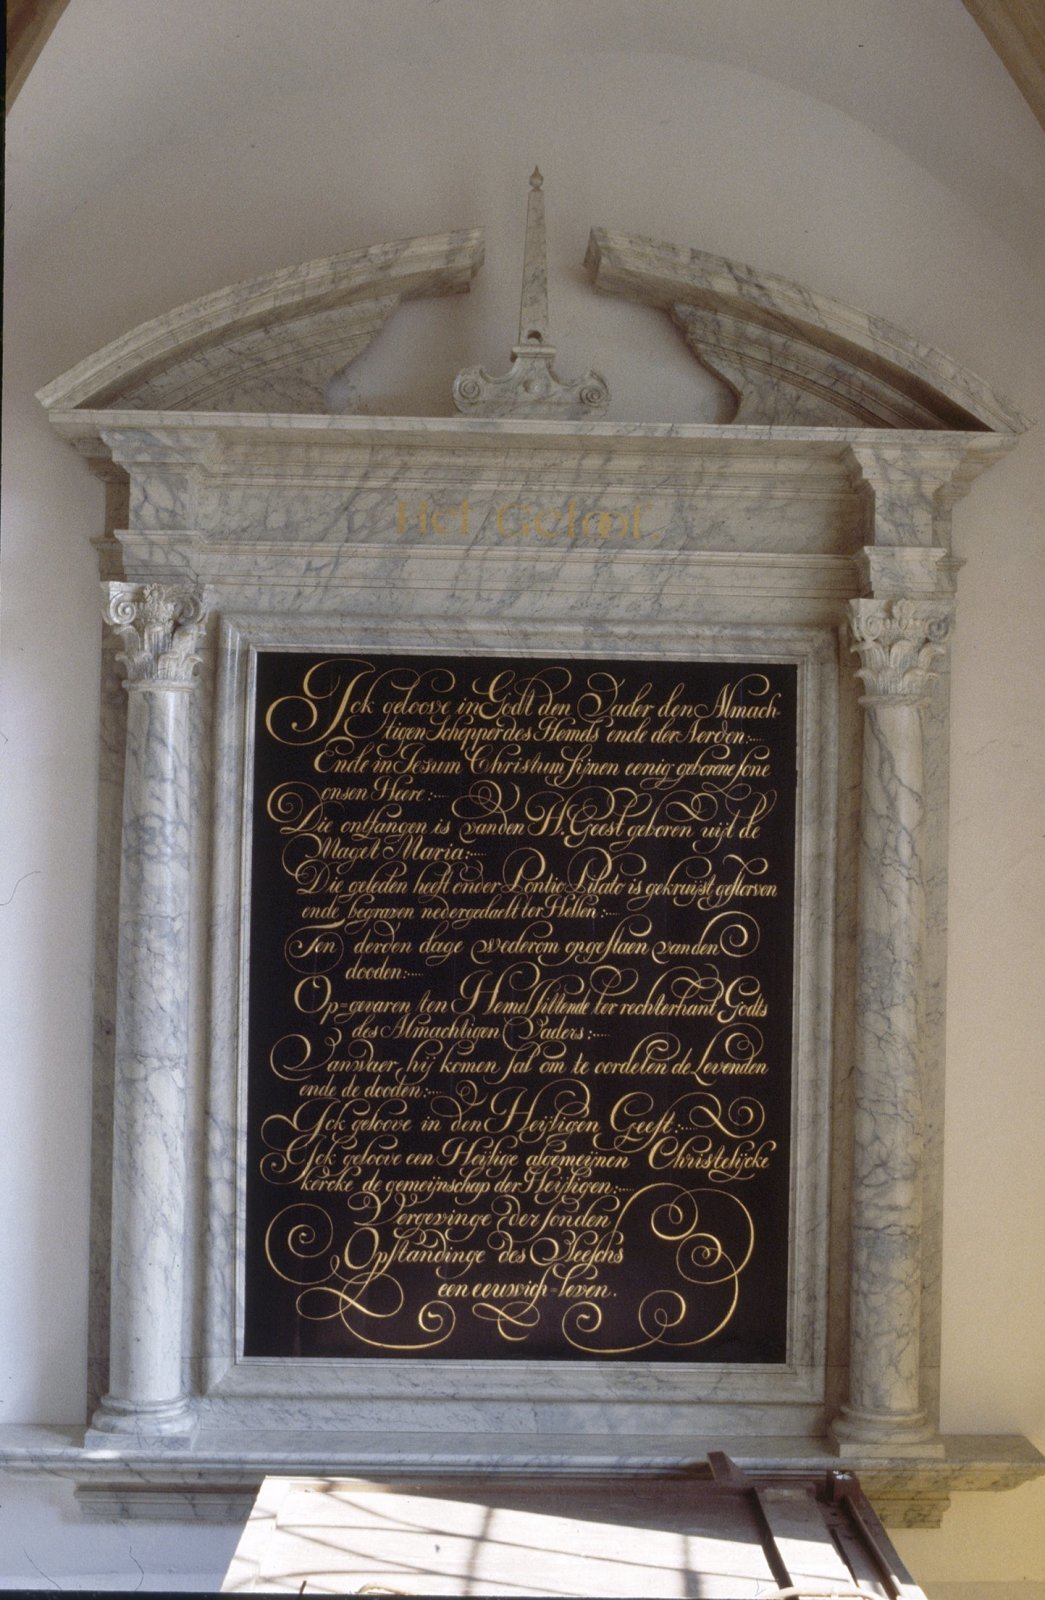 Het Geloof.
Ick geloove in Godt den Vader den Almach-
tigen Schepper des Hemels ende der Aerden:
Ende in Jesum Christum sijnen eenig geborene sone
onsen Heere:
Die ontfangen is vanden H. Geest geboren uijt de
Maget Maria:
Die geleden heeft onder Pontio Pilato is gekruijst gestorven
ende begraven nedergedaelt ter Hellen:
Ten derden dage wederom opgestaen vanden
dooden:
Op=gevaren ten Hemel sittende ter rechterhant Godts
des Almachtigen Vaders:
Vanwaer hij komen sal om te oordelen de Levenden
ende de dooden:
Ick geloove in den Heijligen Geest:
Ick geloove een Heijlige algemeijnen Christelijcke
kercke de gemeijnschap der Heijligen:
Vergevinge der sonden
Opstandinge des Vleeschs
een eeuwich=leven.